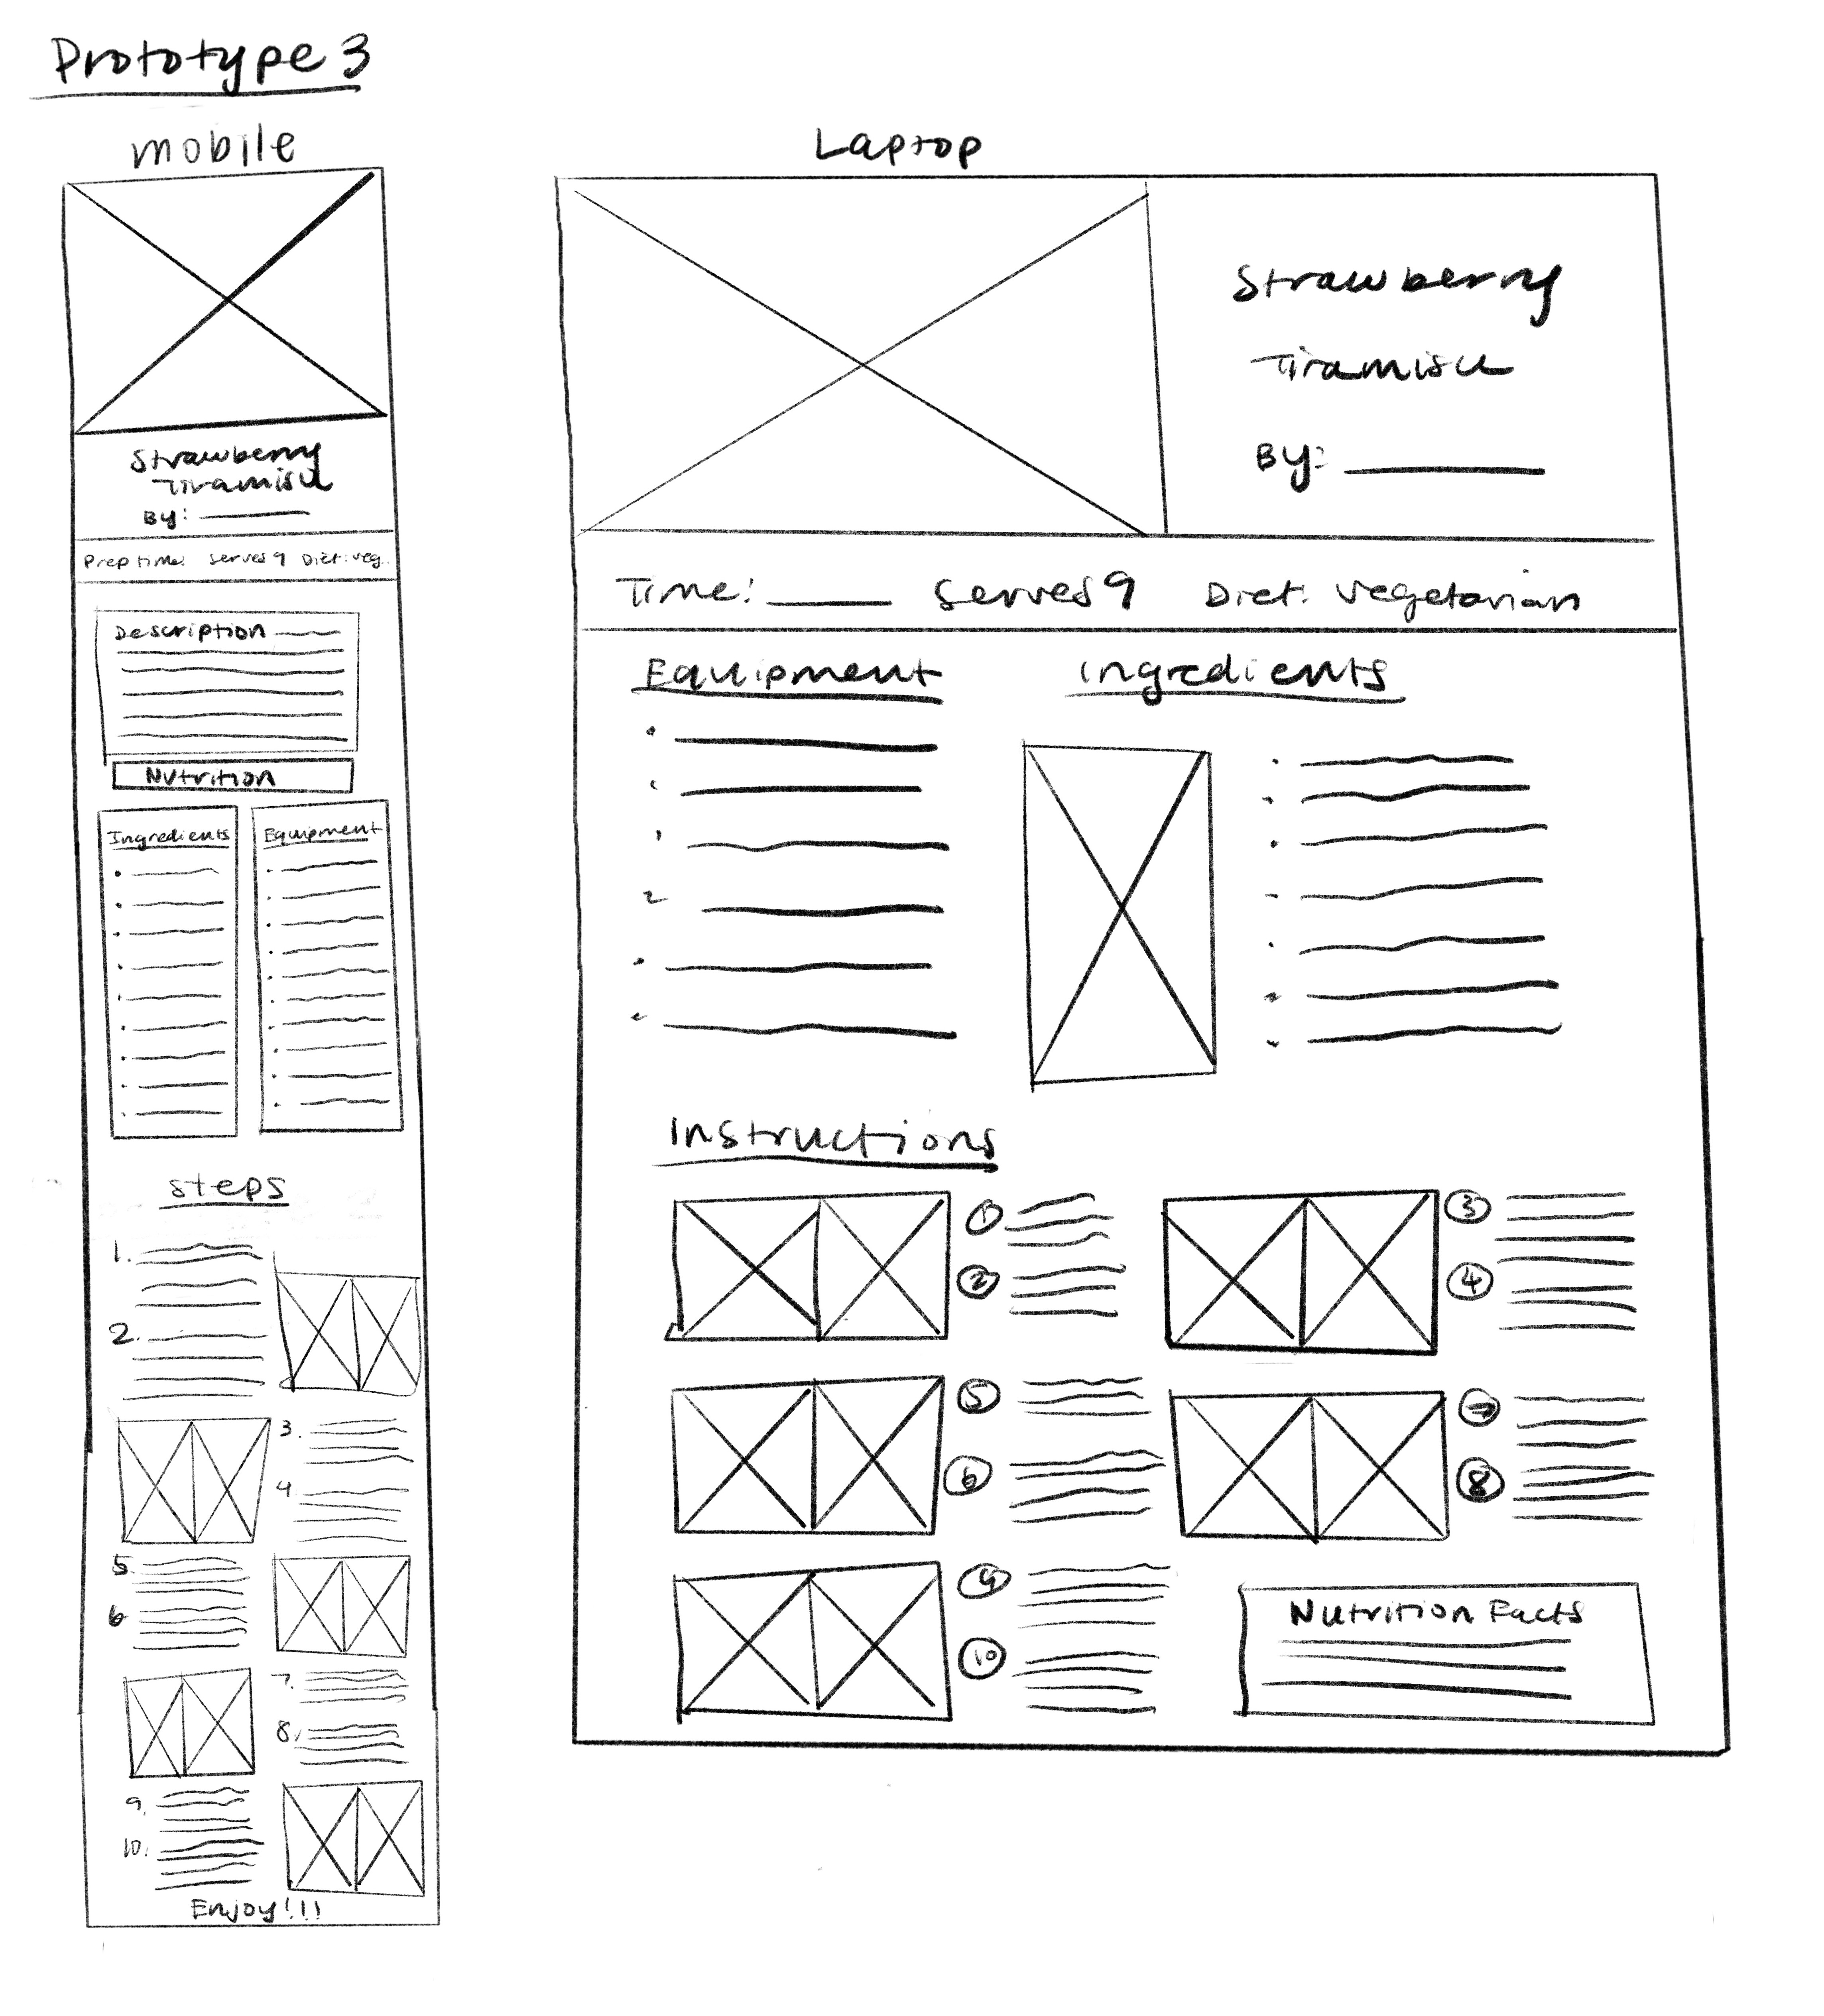 Prototype 3
mobile
Strawberry
Tiramisu
By:
Prep time: serves 9 Diet: veg.
Description
Nutrition
Ingredients
Equipment
steps
1.
2.
3.
4
5
6
7.
8.
9.
10.
Enjoy!!!
Laptop
Strawberry
Tiramisu
By:
Time: serves 9 Diet: vegetarian
Equipment
Ingredients
Instructions
1
2
3
4
5
6
7
8
9
10
Nutrition Facts